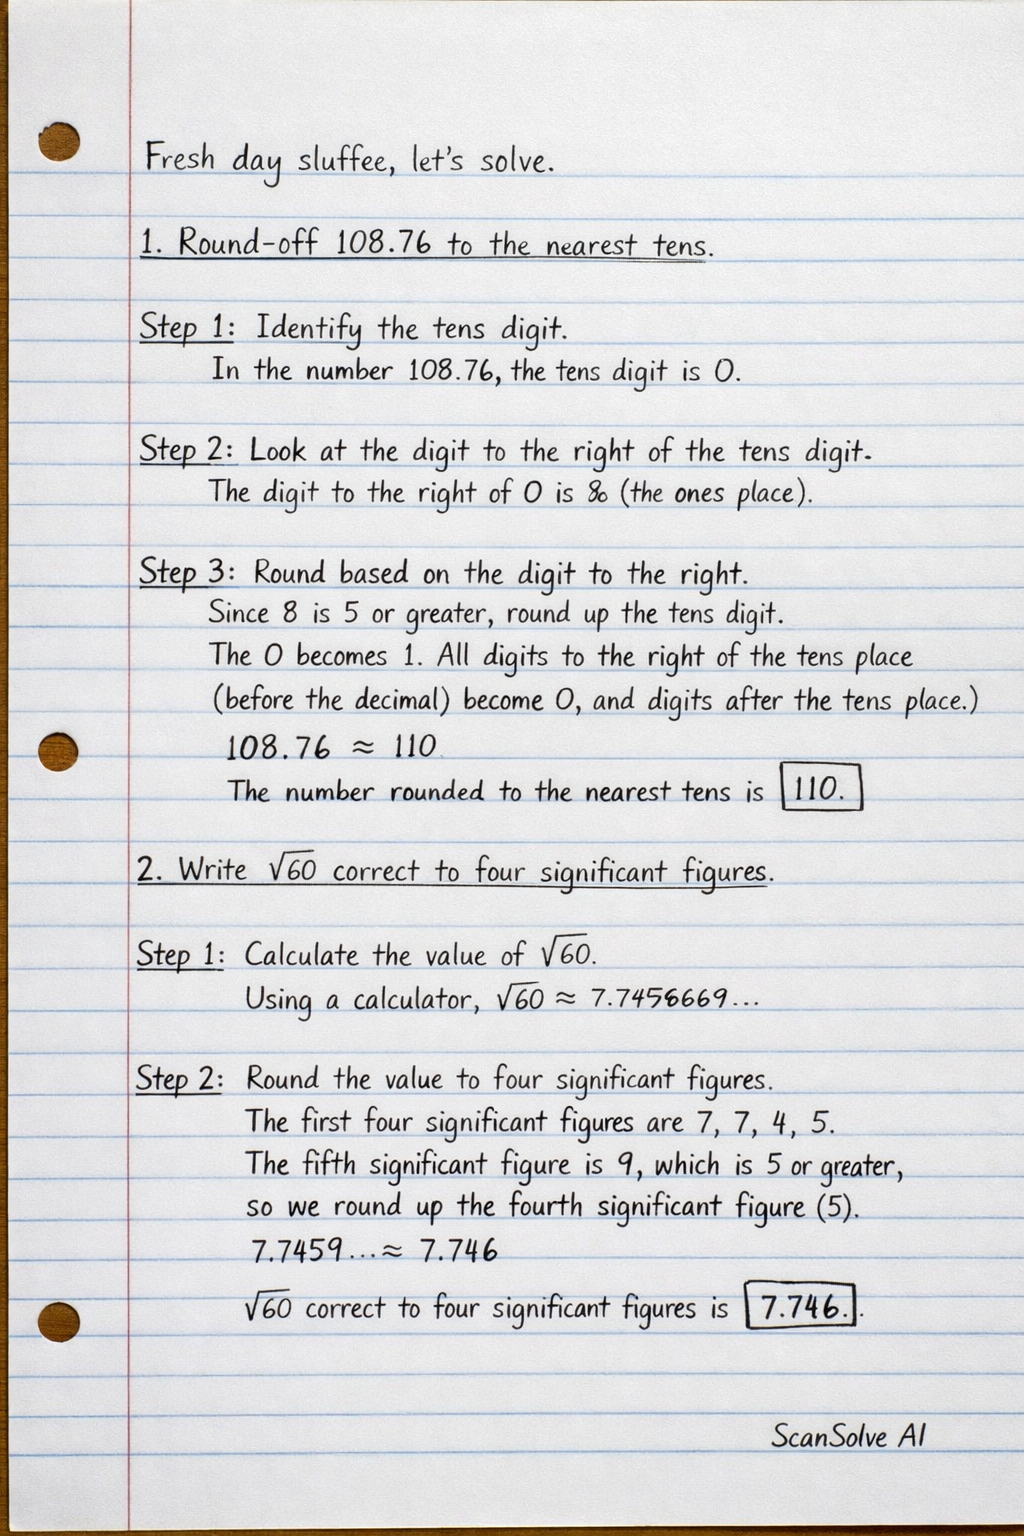 Fresh day sluffee, let's solve.
1. Round-off 108.76 to the nearest tens.
Step 1: Identify the tens digit.
In the number 108.76, the tens digit is 0.
Step 2: Look at the digit to the right of the tens digit.
The digit to the right of 0 is 8 (the ones place).
Step 3: Round based on the digit to the right.
Since 8 is 5 or greater, round up the tens digit.
The 0 becomes 1. All digits to the right of the tens place
(before the decimal) become 0, and digits after the tens place.)
108.76 ≈ 110
The number rounded to the nearest tens is 110.
2. Write √60 correct to four significant figures.
Step 1: Calculate the value of √60.
Using a calculator, √60 ≈ 7.7456669...
Step 2: Round the value to four significant figures.
The first four significant figures are 7, 7, 4, 5.
The fifth significant figure is 9, which is 5 or greater,
so we round up the fourth significant figure (5).
7.7459...≈ 7.746
√60 correct to four significant figures is 7.746..
ScanSolve AI